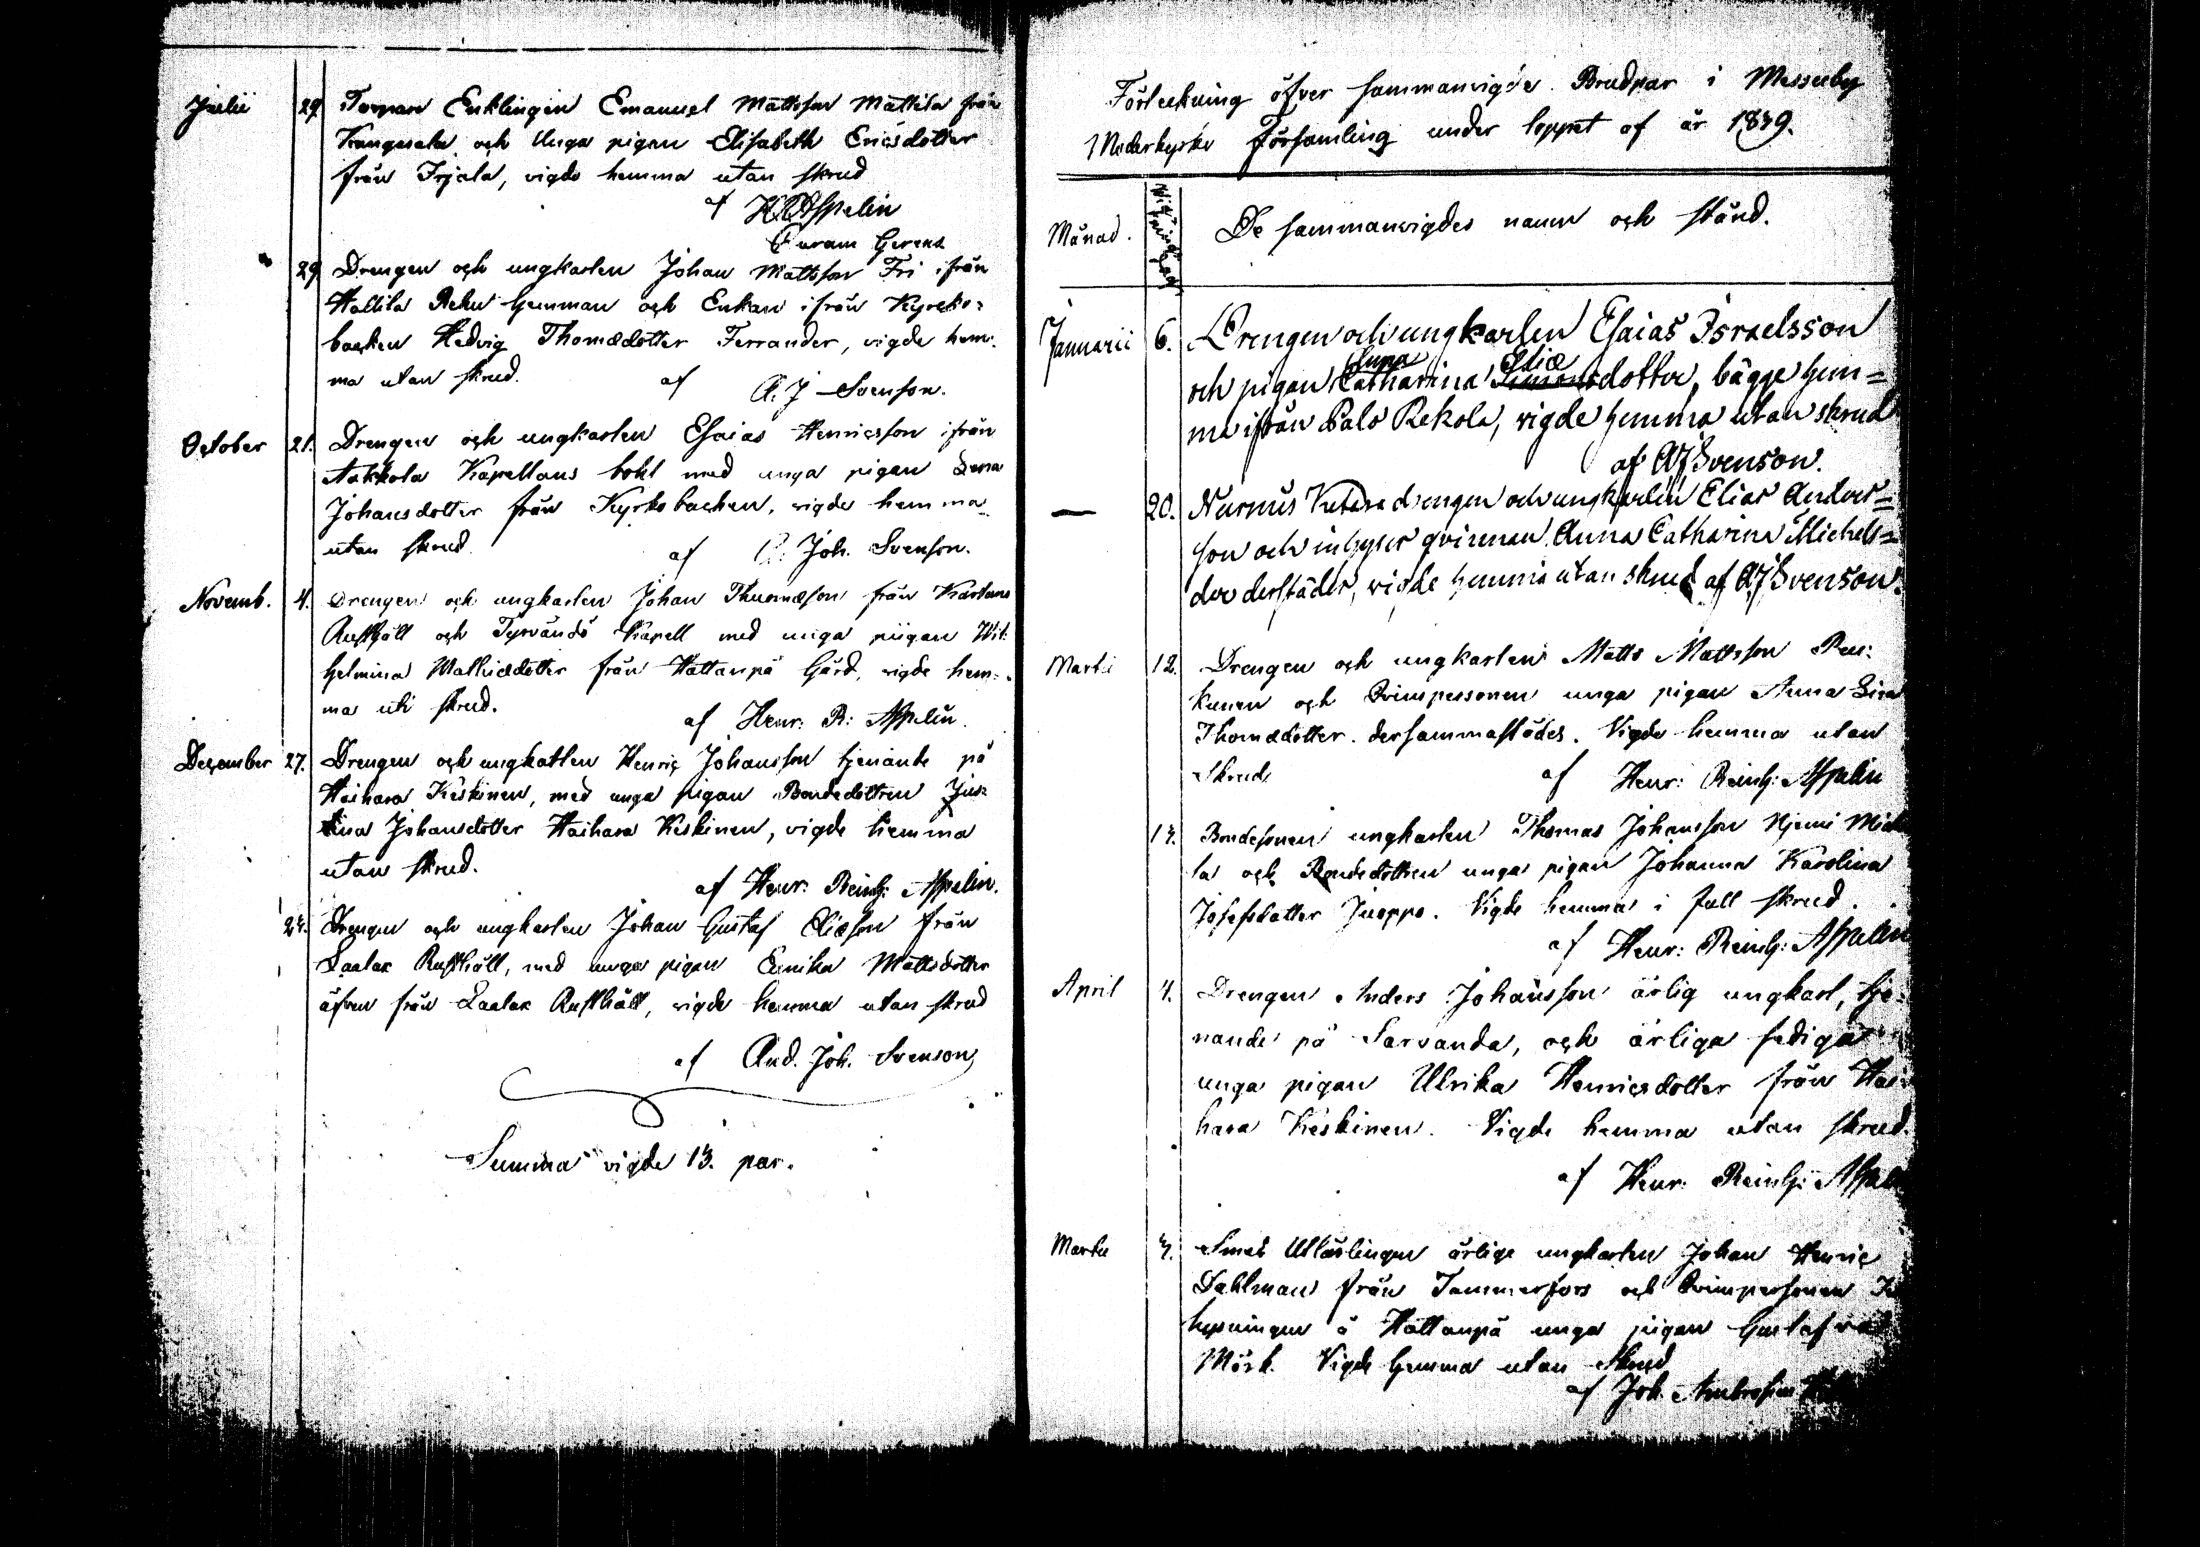 Julii 29. Torparn Enklingen Emanuel Mattsson Mattila från
Kangasala och Unga pigan Elisabeth Ericsdotter
från Irjala, vigde hemma utan skrud
af HR Asspelin
Curam Gerens
29. Drengen och ungkarlen Johan Mattsson Fri ifrån
Hallila Reku hemman och Enkan ifrån Kyrko-
backen Hedvig Thomædotter Ferrander, vigde hem-
ma utan skrud. af A. J Svenson.
October 21. Drengen och ungkarlen Esaias Henricsson ifrån
Takkola Kapellans bohl med unga pigan Lena
Johansdotter från Kyrkobacken, vigde hemma
utan skrud. af A. Joh. Svenson.
Novemb. 4. Drengen och ungkarlen Johan Thomæson från
Rusthåll och Tyrvändö Kapell med unga piigan Wil-
helmina Mathiædotter från Hattanpä Gård, vigde hem-
ma uti skrud. af Henr: R: Asspelin.
December 27. Drengen och ungkarlen Henric Johansson tjenande på
Haihara Keskinen, med unga pigan Bondedottren Jus-
tina Johansdotter Haihara Keskinen, vigde hemma
utan skrud.
af Henr: Reinh: Asspelin.
27. Drengen och ungkarlen Johan Gustaf Eliæson från
Laalax Rusthåll, med unga pigan Eerika Mattsdotter
äfven från Laalax Rusthåll, vigde hemma utan skrud
af And. Joh. Svenson
Summa vigde 13. par.
Förteckning öfver sammanvigde Brudpar i Messuby
Moderkyrko Församling under loppet af år 1839.
Månad. De sammanvigdes namn och stånd.
Januarii 6. Drengen och ungkarlen Esaias Israelsson
Anna Eliæ
och pigan Catharina Simonsdotter, bägge hem=
ma ifrån Palo Rekola, vigde hemma utan skrud
af AJ Svenson.
— 20. Nurmis drengen och ungkarlen Elias Anders=
son och inhyses qvinnan Anna Catharina Michels=
dor derstädes, vigde hemma utan skrud af AJ Svenson.
Martii 12. Drengen och ungkarlen Matts Mattsson
och Qvinspersonen unga pigan Anna Lisa
Thomædotter. dersammastädes. Vigde hemma utan
Skrud. af Henr: Reinh: Asspelin
17. Bondesonen ungkarlen Thomas Johansson Njemi Micko
la och Bondedottren unga pigan Johanna Karolina
Josefsdotter Juoppo. Vigde hemma i full skrud.
af Henr: Reinh: Asspelin
April 4. Drengen Anders Johansson ärlig ungkarl, tje-
nande på Sarvanda, och ärliga sediga
unga pigan Ulrika Henricsdotter från Hai-
hara Keskinen. Vigde hemma utan skrud.
af Henr: Reinh: Asspel
Martii 3. Smeds Utlärlingen ärlige ungkarlen Johan Henric
Dahlman från Tammerfors och Qvinspersonen
hysningen å Hattanpä unga pigan Gustafva
Mörk. Vigde hemma utan Skrud
af Joh. Ambrosius